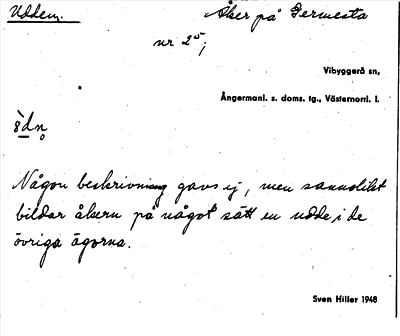 Udden. Åker på Germesta
nr 25;
Vibyggerå sn,
Ångermanl. s. doms. tg., Västernorrl. l.
Någon beskrivning gavs ej, men sannolikt
bildar åkern på något sätt en udde i de
övriga ägorna.
Sven Hiller 1948